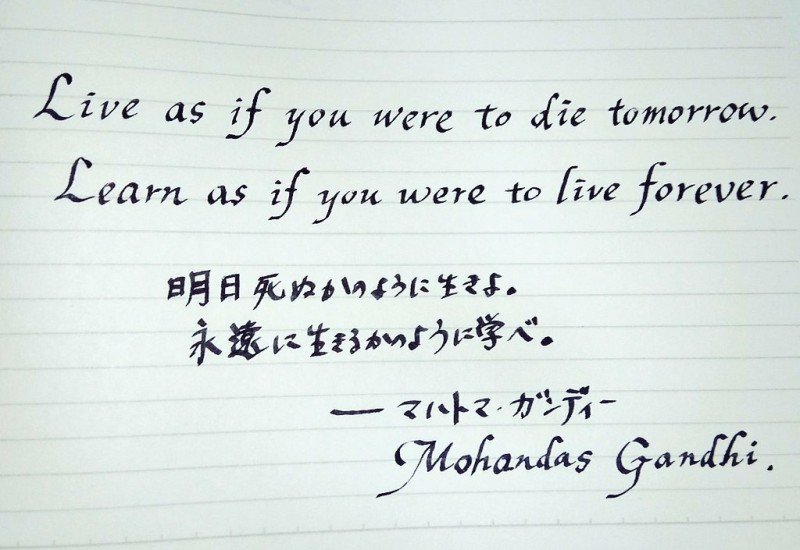 Live as if you were to die tomorrow.
Learn as if you were to live forever.
明日死ぬかのように生きよ。
永遠に生きるかのように学べ。
— マハトマ・ガンディー
Mohandas Gandhi.